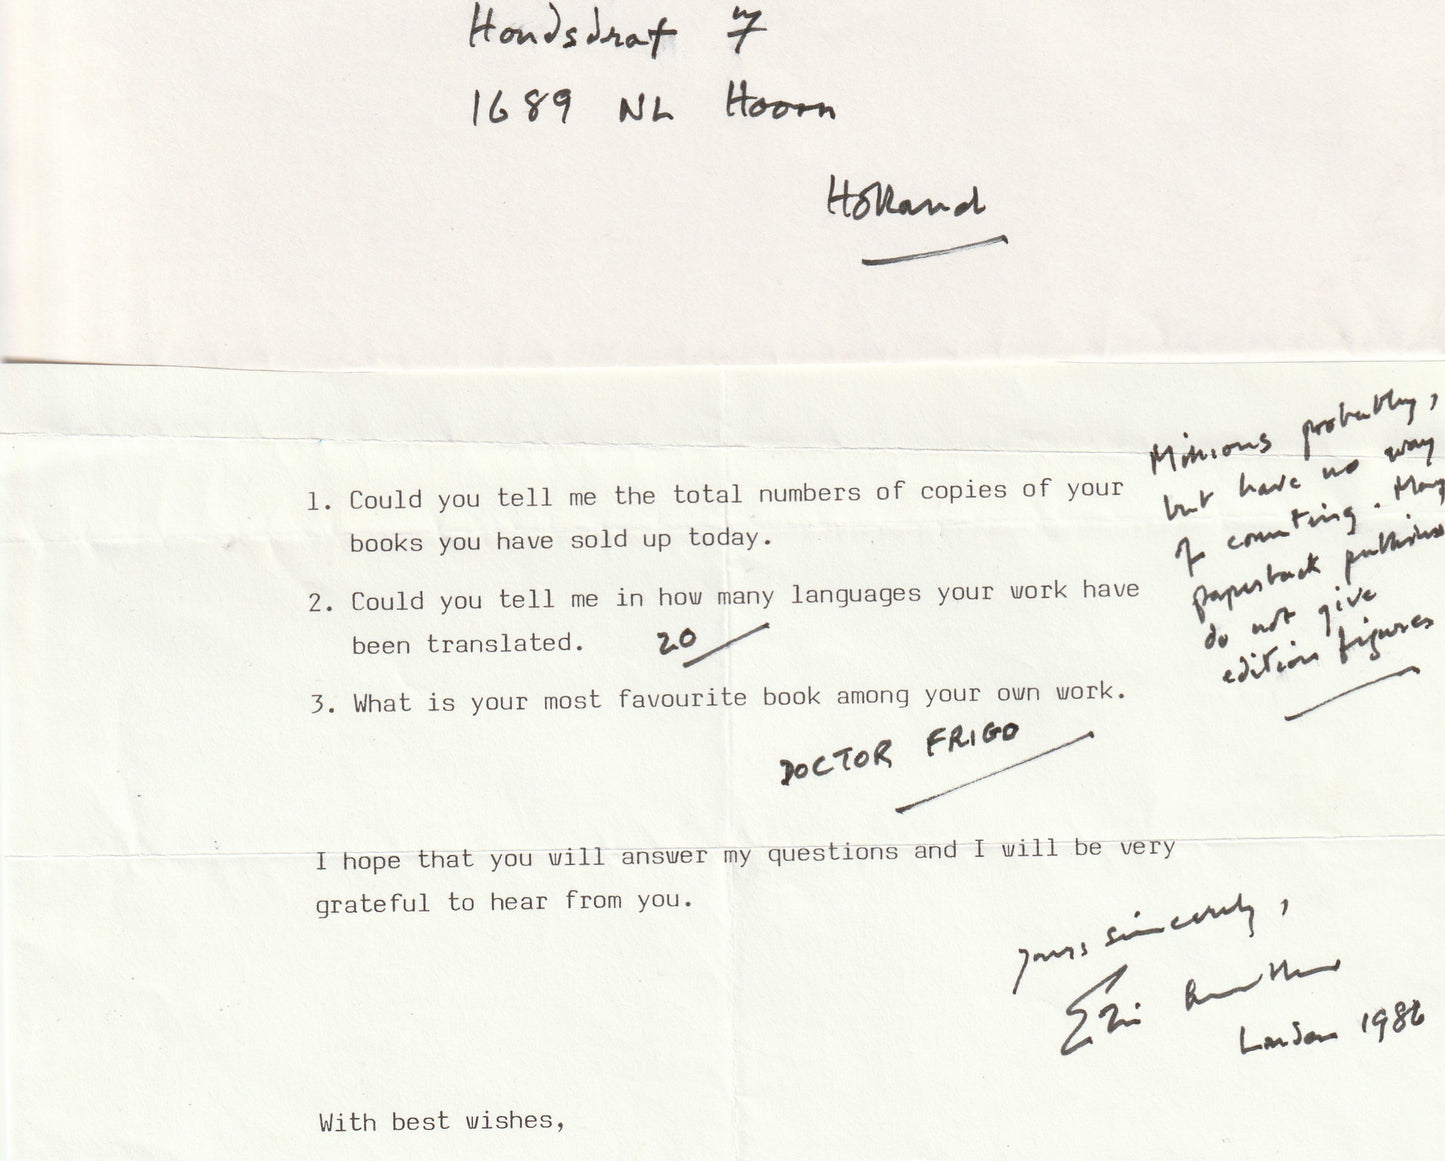 Hondsdraf 7
1689 NL Hoorn
Holland
1. Could you tell me the total numbers of copies of your
books you have sold up today.
Millions probably,
but have no way
of counting. Many
paperback publishers
do not give
edition figures
2. Could you tell me in how many languages your work have
been translated. 20
3. What is your most favourite book among your own work.
DOCTOR FRIGO
I hope that you will answer my questions and I will be very
grateful to hear from you.
Yours sincerely,
Eric Ambler
London 1986
With best wishes,